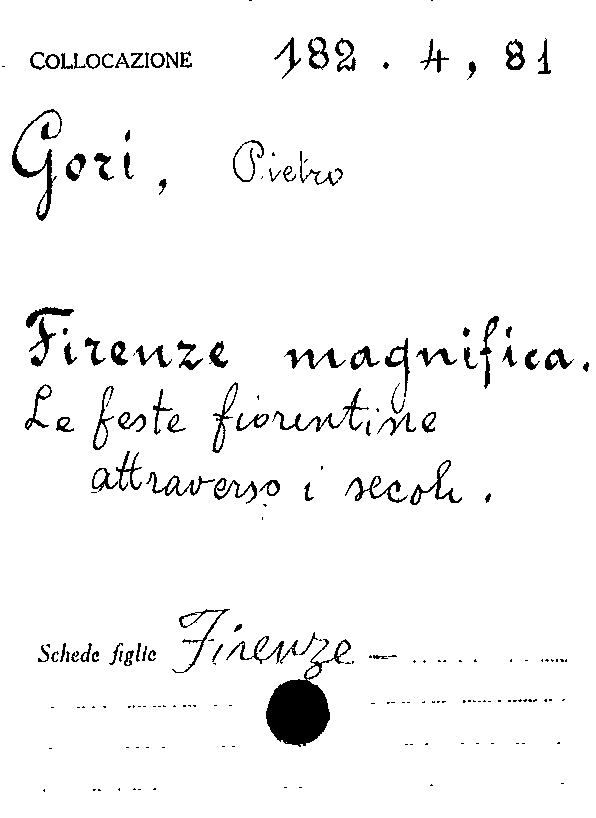 COLLOCAZIONE 182 . 4 , 81
Gori, Pietro
Firenze magnifica.
Le feste fiorentine
attraverso i secoli.
Schede figlie Firenze —